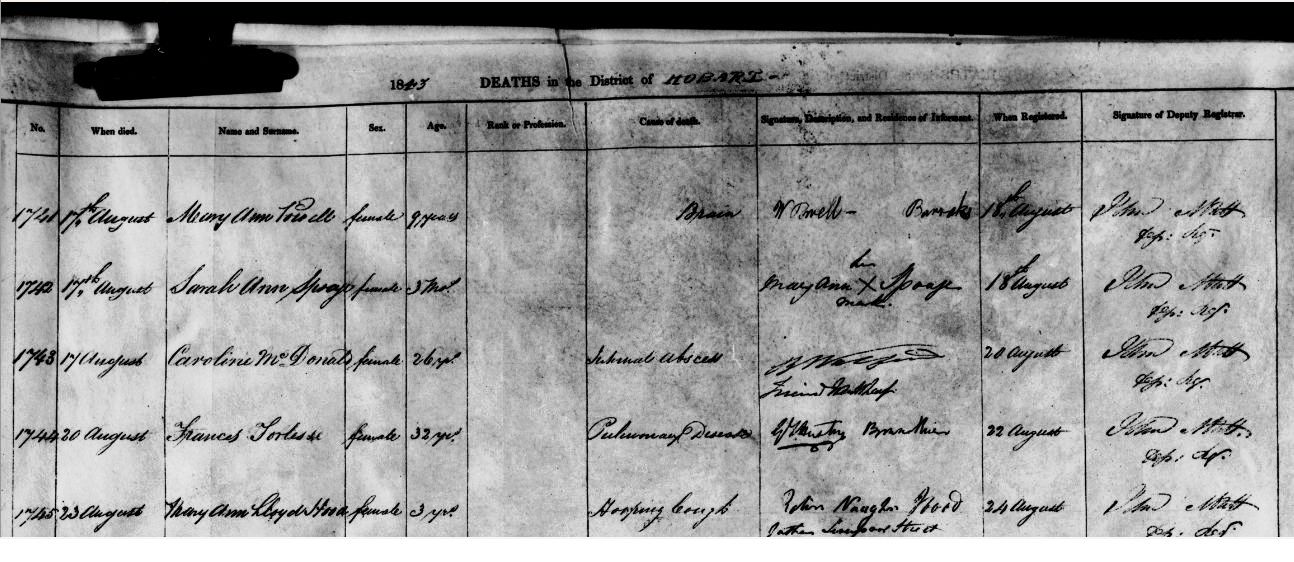 1843 DEATHS in the District of HOBART
No. When died. Name and Surname. Sex. Age. Rank or Profession. Cause of death. Signature, Description, and Residence of Informant. When Registered. Signature of Deputy Registrar.
1741 17th August Mary Ann Powell female 9 years Brain W Powell Barracks 18th August John
Dep: Reg:
her
1742 17th August Sarah Ann female 3 Mos. Mary Ann X 18th August John
mark Dep: Reg:
1743 17 August Caroline McDonald female 26 yrs. Internal Abscess 20 August John
Friend Dep: Reg:
1744 20 August Frances female 32 yrs. Pulmonary Disease 22 August John
Dep: Reg:
1745 23 August Mary Ann Lloyd Hood female 3 yrs. Hooping Cough Hood 24 August John
Father Street Dep: Reg: